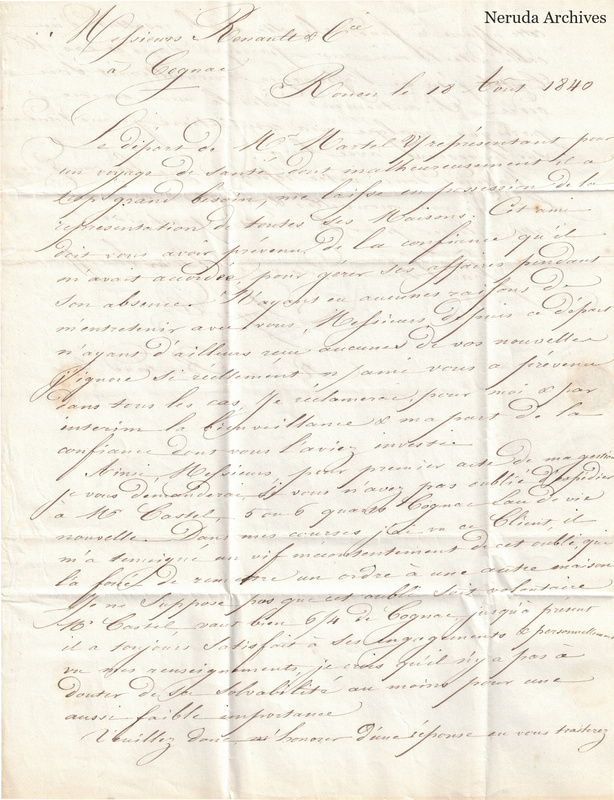 Neruda Archives
Messieurs Renault & Cie
à Cognac
Rouen le 18 Août 1840
Le départ de Mr Martel représentant pour
un voyage de santé dont malheureusement il a
le plus grand besoin, me laisse en possession de la
représentation de toutes ses Maisons. Cet ami
doit vous avoir prévenu de la confiance qu'il
m'avait accordée pour gérer ses affaires pendant
son absence. N'ayant eu aucunes raisons de
m'entretenir avec vous, Messieurs, depuis ce départ
n'ayant d'ailleurs reçu aucunes de vos nouvelles
j'ignore si réellement vous a prévenu
dans tous les cas, je réclamerai pour moi & par
interim la bienveillance & ma part de la
confiance dont vous l'aviez investi.
Ainsi, Messieurs, pour premier acte de ma gestion
je vous demanderai si vous n'avez pas oublié d'expédier
à Mr Castel, 5 ou 6 quarts Cognac Eau de vie
nouvelle. Dans mes courses j'ai vu ce Client, il
m'a témoigné un vif mécontentement de cet oubli, qui
la forcé de remettre un ordre à une autre maison
Je ne suppose pas que cet oubli soit volontaire
Mr Castel vaut bien 6/4 de Cognac, jusqu'à présent
il a toujours satisfait à ses engagements & personnellement
vu mes renseignements, je crois qu'il n'y a pas à
douter de sa solvabilité au moins pour une
aussi faible importance
Veuillez donc m'honorer d'une réponse où vous traiterez